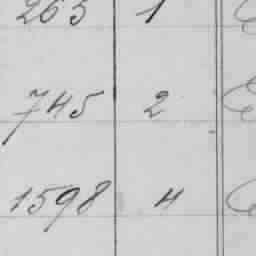 265 1
745 2
1598 4